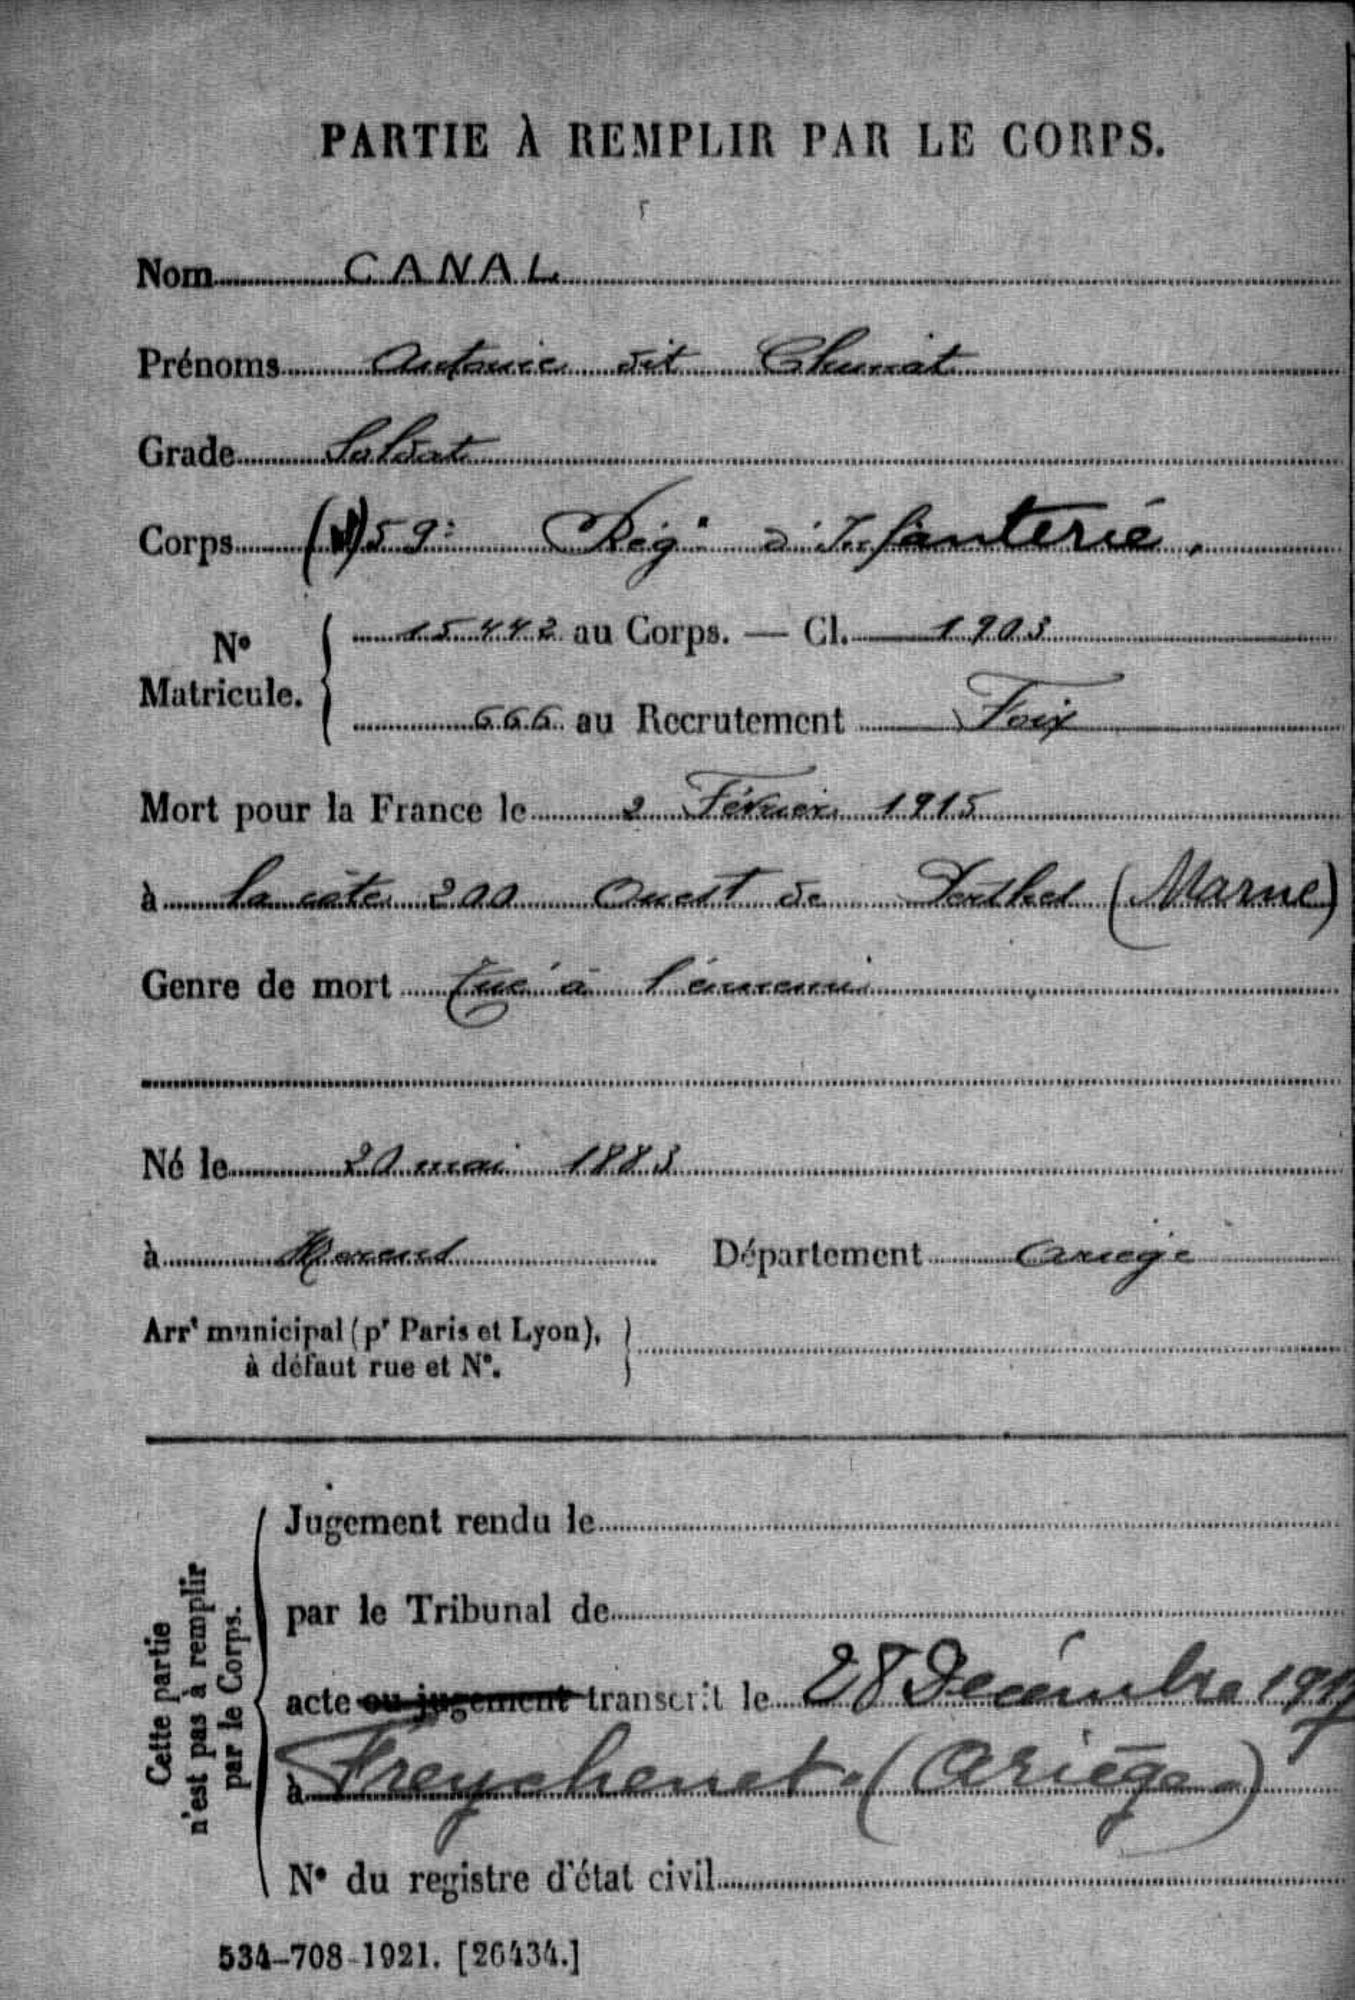 PARTIE À REMPLIR PAR LE CORPS.
Nom CANAL
Prénoms Antoine dit
Grade Soldat
Corps 59e Régt d'Infanterie.
No Matricule. 15442 au Corps. — Cl. 1903
666 au Recrutement Foix
Mort pour la France le 2 Février 1915
à la côte 200 Ouest de Perthes (Marne)
Genre de mort Tué à l'ennemi
Né le 20 mai 1883
à Département Ariège
Arrt municipal (pr Paris et Lyon),
à défaut rue et No.
Cette partie
n'est pas à remplir
par le Corps.
Jugement rendu le
par le Tribunal de
acte ou jugement transcrit le 28 Décembre 1917
à Freychenet (Ariège)
No du registre d'état civil
534-708-1921. [26434.]